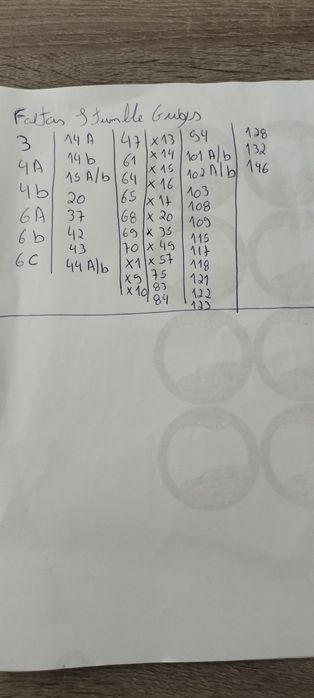 Faltas Stumble Guys
3
4A
4b
6A
6b
6C
14A
14b
15A/b
20
37
42
43
44A/b
47
61
64
65
68
69
70
x1
x9
x10
x13
x14
x15
x16
x17
x20
x35
x49
x57
75
83
84
94
101A/b
102A/b
103
108
109
115
117
118
121
122
123
128
132
146